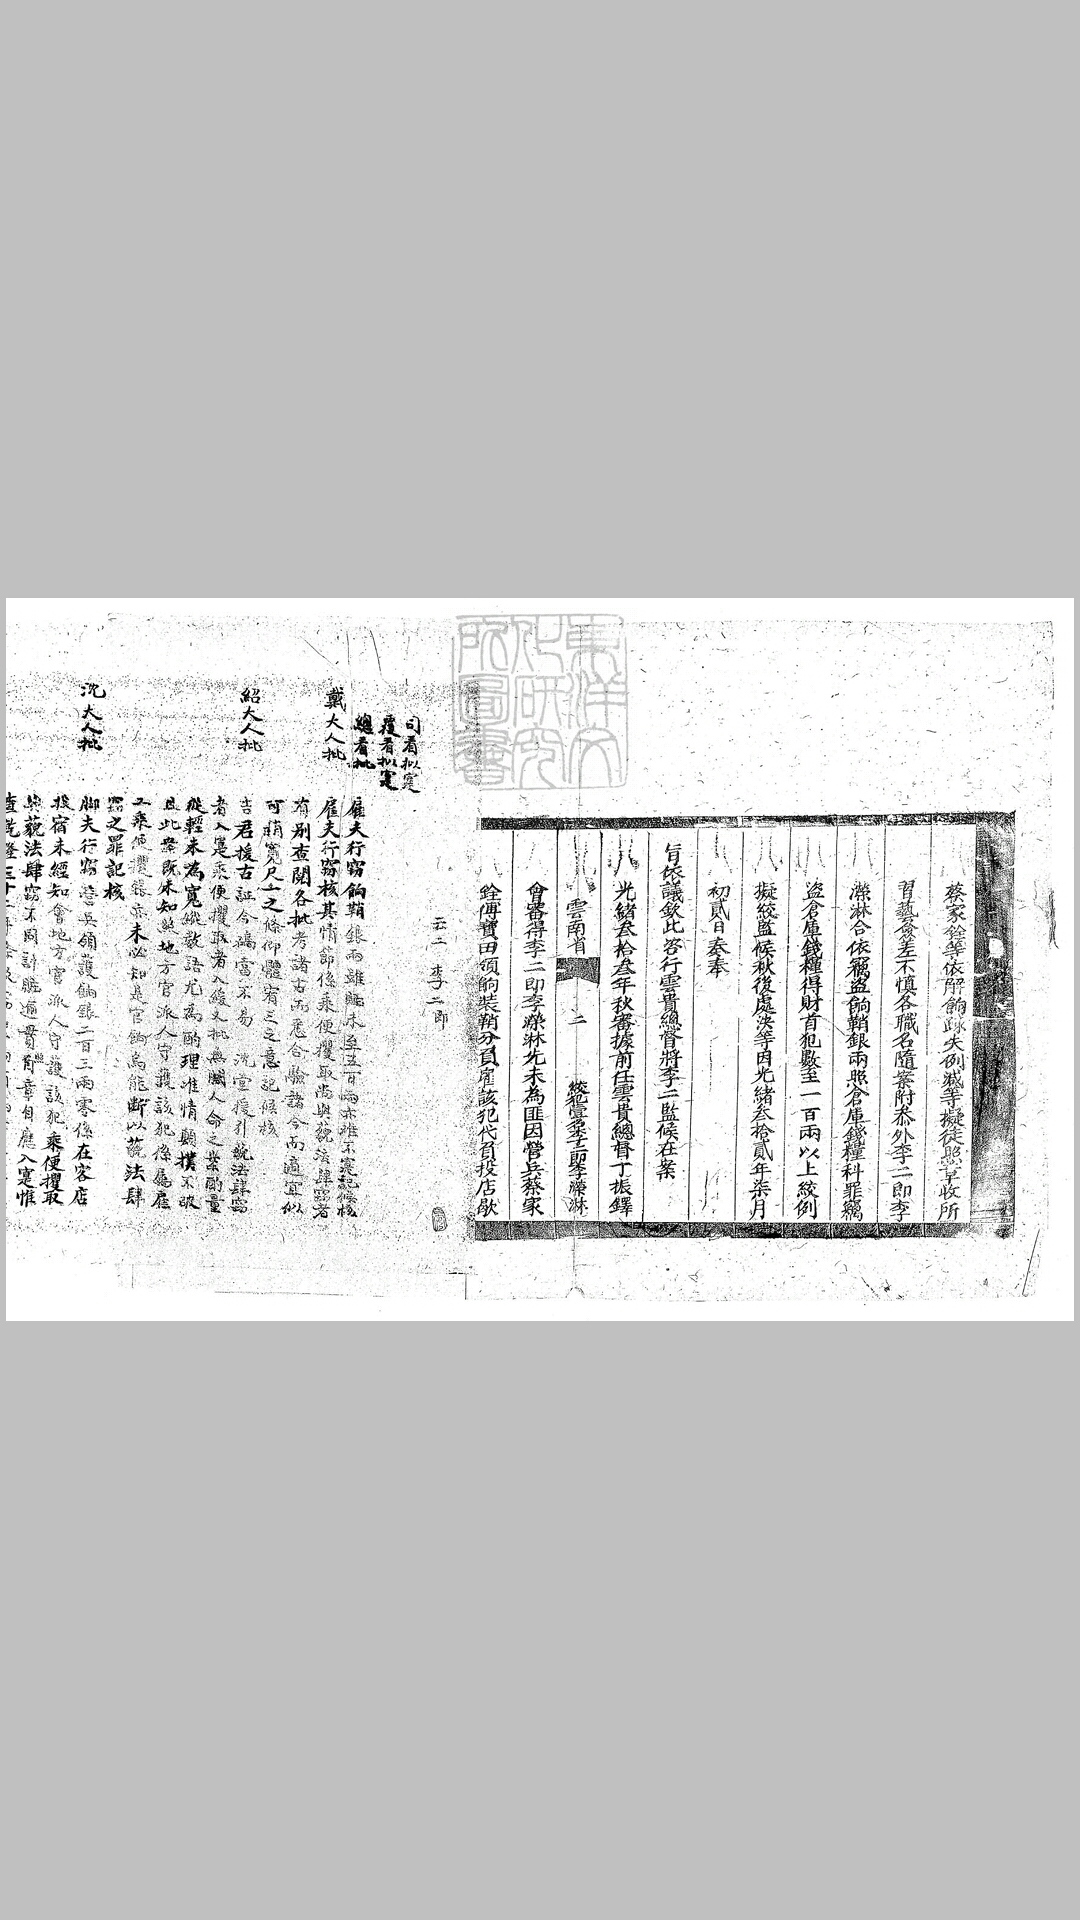 蔡家銓等依解餉踈失例減等擬徒照章收所
習藝僉差不慎各職名隨案附叅外李二即李
濚淋合依竊盜餉鞘銀兩照倉庫錢糧科罪竊
盜倉庫錢糧得財首犯數至一百兩以上絞例
擬絞監候秋後處決等因光緒叁拾貳年柒月
初貳日奏奉
旨依議欽此咨行雲貴總督將李二監候在案
光緒叁拾叁年秋審據前任雲貴總督丁振鐸
雲南省 二 絞犯壹案壹起李濚淋
會審得李二即李濚淋先未為匪因營兵蔡家
銓傅寶田領餉裝鞘分頁雇該犯代負投店歇
云二 李二郎
司看擬寔
覆看擬寔
總看批 雇夫行窃餉鞘銀兩雖贓未至五百兩亦難不寔記候核
戴大人批 雇夫行窃核其情節係乘便攫取尚與藐法肆窃者
有別查閱各批考諸古而悉合驗諸今而適宜似
可稍寬尺一之條仰體宥三之意記候核
紹大人批 吉君援古証今確當不易沈堂援引藐法肆窃
者入寔乘便攫取者入緩又批無關人命之案酌量
從輕未為寬縱數語尤為酌理准情顛撲不破
且此案既未知照地方官派人守護該犯係屬雇
工乘便攫銀亦未必知是官餉烏能斷以藐法肆
竊之罪記核
沈大人批 脚夫行窃營兵領護餉銀二百三兩零係在客店
投宿未經知會地方官派人守護該犯乘便攫取
與藐法肆窃不同計贓逾貫照章自應入寔惟